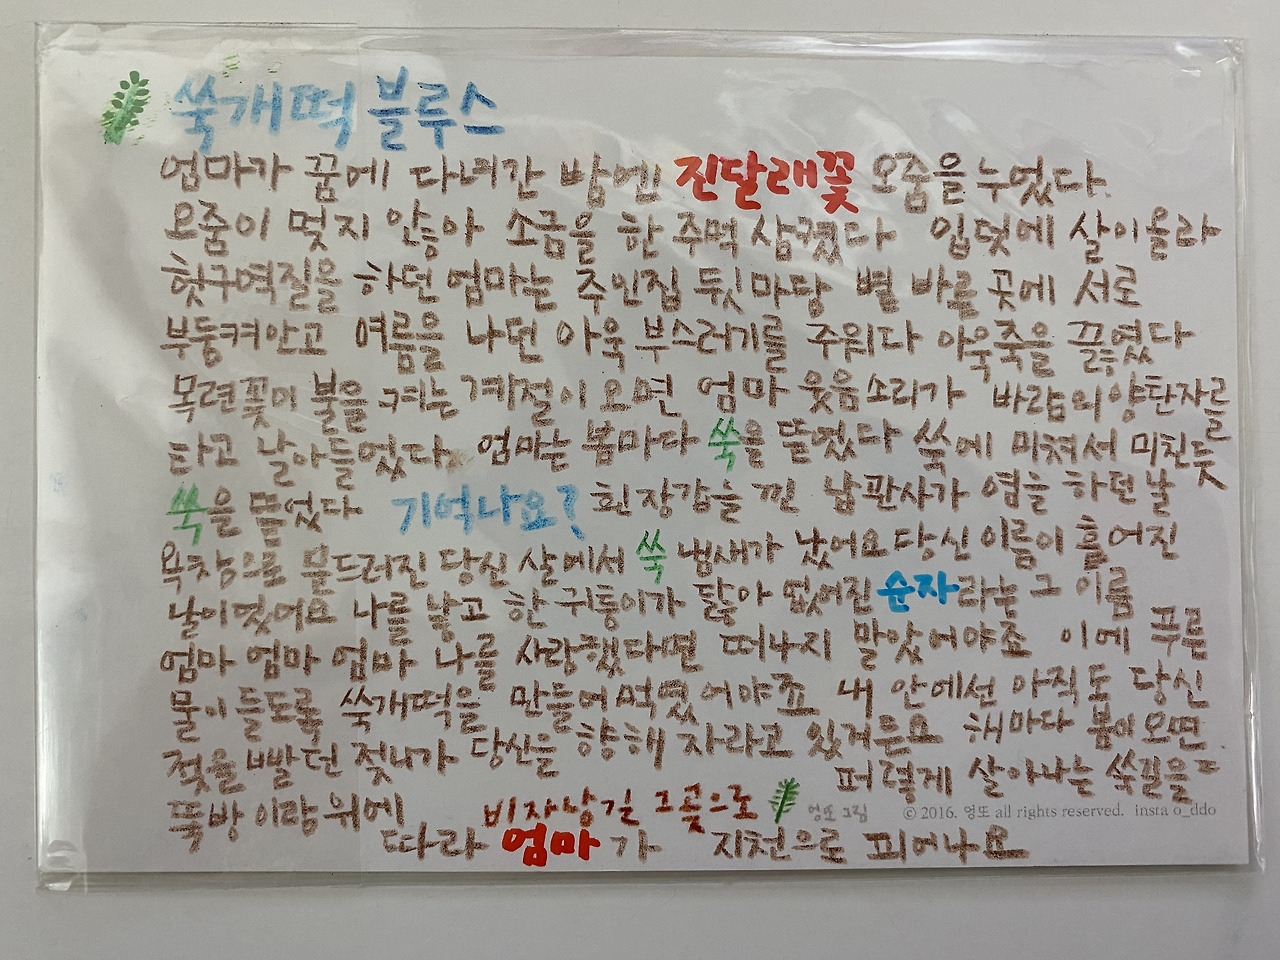 쑥개떡 블루스
엄마가 꿈에 다녀간 밤엔 진달래꽃 오줌을 누었다
오줌이 멎지 않아 소금을 한 주먹 삼켰다 입덧에 살이올라
헛구역질을 하던 엄마는 주인집 뒷마당 볕 바른 곳에 서로
부둥켜안고 여름을 나던 아욱 부스러기를 주워다 아욱죽을 끓였다
목련꽃이 불을 켜는 계절이오면 엄마 웃음소리가 바람의양탄자를
타고 날아들었다 엄마는 봄마다 쑥을 뜯었다 쑥에 미쳐서 미친듯
쑥을 뜯었다 기억나요? 흰장갑을 낀 남관사가 염을 하던날
욕창으로 문드러진 당신 살에서 쑥 냄새가 났어요 당신이름이 흩어진
날이었어요 나를 낳고 한 귀퉁이가 닳아 떨어진 순자라는 그 이름
엄마 엄마 엄마 나를 사랑했다면 떠나지 말았어야죠 이에 푸른
물이 들도록 쑥개떡을 만들어먹였어야죠 내 안에선 아직도 당신
젖을 빨던 젖니가 당신을 향해 자라고 있거든요 해마다 봄이오면
뚝방 이랑위에 퍼렇게 살아나는 쑥길을
비자남긴 그곳으로 영또 그림 © 2016. 영또 all rights reserved. insta o_ddo
따라 엄마가 지천으로 피어나요